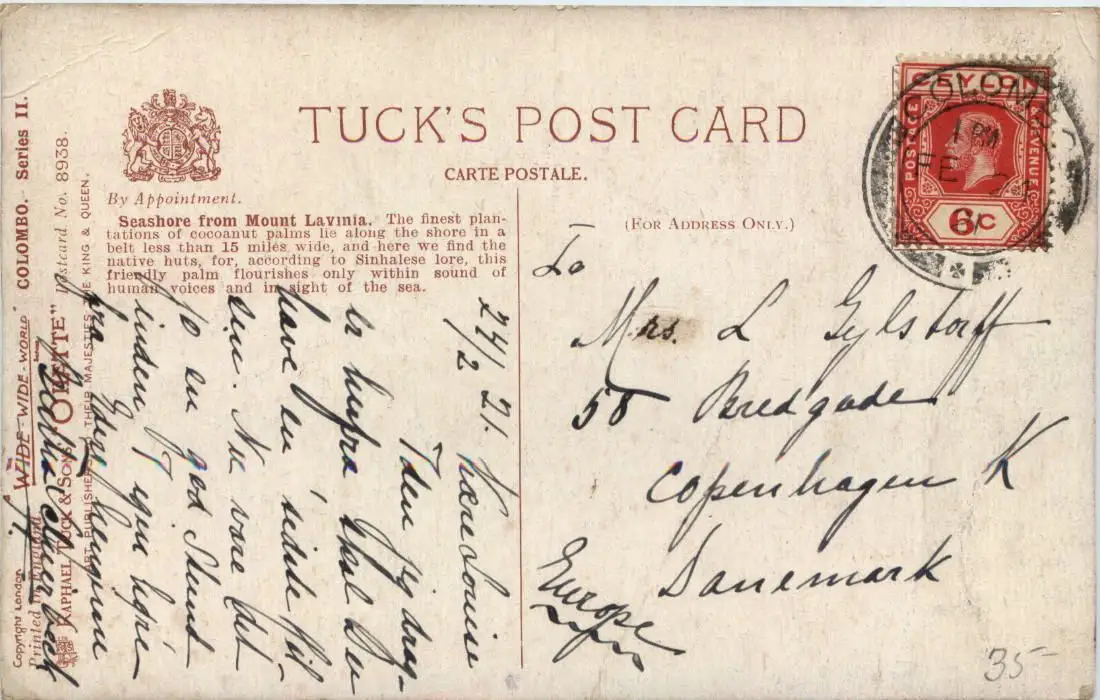 TUCK'S POST CARD
CARTE POSTALE.
By Appointment.
Seashore from Mount Lavinia. The finest plan-
tations of cocoanut palms lie along the shore in a
belt less than 15 miles wide, and here we find the
native huts, for, according to Sinhalese lore, this
friendly palm flourishes only within sound of
human voices and in sight of the sea.
(FOR ADDRESS ONLY.)
CEYLON
POSTAGE
REVENUE
6c
COLOMBO
1 PM
FE
To
Mrs. L Gylstorff
58 Bredgade
Copenhagen K
Danemark
Europe
24/2 21. Kære Louise
Iden jeg drag-
er herfra skal Du
have en sidste Hil-
sen. Nu vare det
jo en god Stund
inden
fra Eder
COLOMBO. Series II.
"WIDE-WIDE-WORLD"
Postcard No. 8938.
RAPHAEL TUCK & SONS' "OILETTE"
ART PUBLISHERS TO THEIR MAJESTIES THE KING & QUEEN.
Copyright London
Printed in England
35-